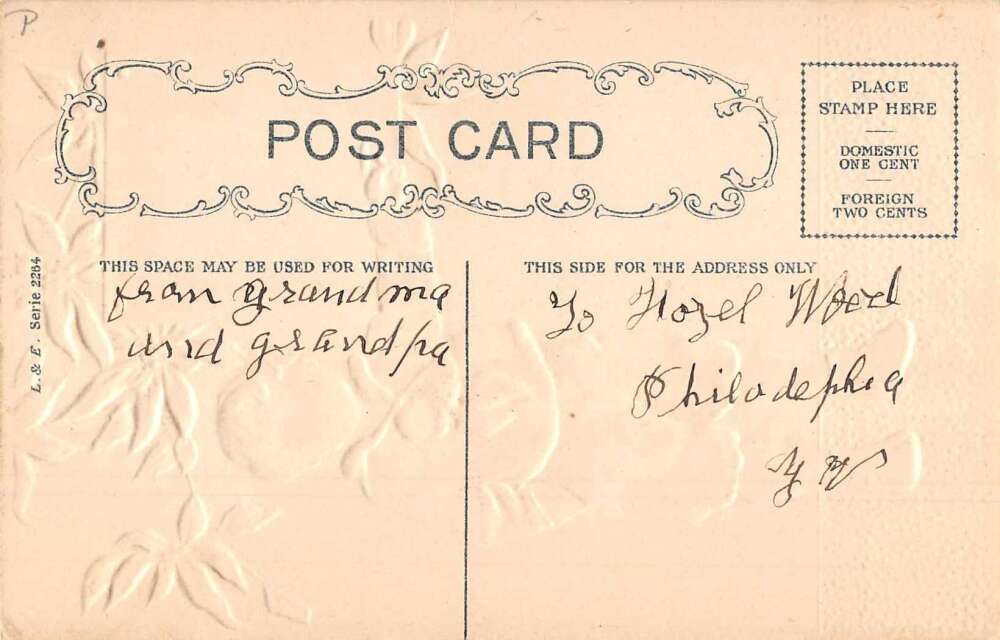 P
POST CARD
PLACE
STAMP HERE
DOMESTIC
ONE CENT
FOREIGN
TWO CENTS
THIS SPACE MAY BE USED FOR WRITING
from grandma
and grandpa
L. & E. Serie 2264
THIS SIDE FOR THE ADDRESS ONLY
To Hazel
Philadephia